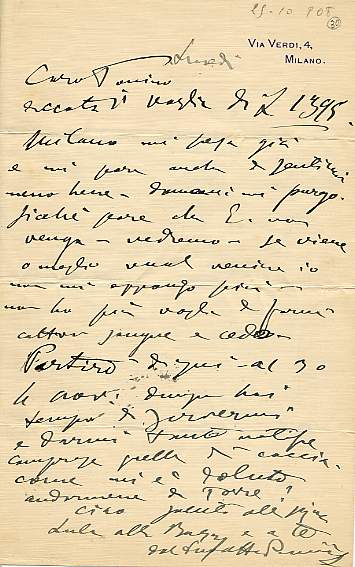 25-10 905
Lunedì
VIA VERDI, 4.
MILANO.
Caro Tonino
eccoti il vaglia di L 1395.
Milano mi pesa già
e mi pare anche di sentirmi
meno bene - domani mi purgo.
Sicchè pare che E. non
venga - vedremo - Se viene
o meglio vuol venire io
non mi oppongo più -
non ho più voglia di farmi
cattivo sangue e cedo
Partirò di qui al 30
le nov. dunque hai
tempo di scrivermi
e darmi tante notizie
comprese quelle di caccia
come mi è doluto
andarmene da Torre!
Ciao saluta alle
alla e a te
dal